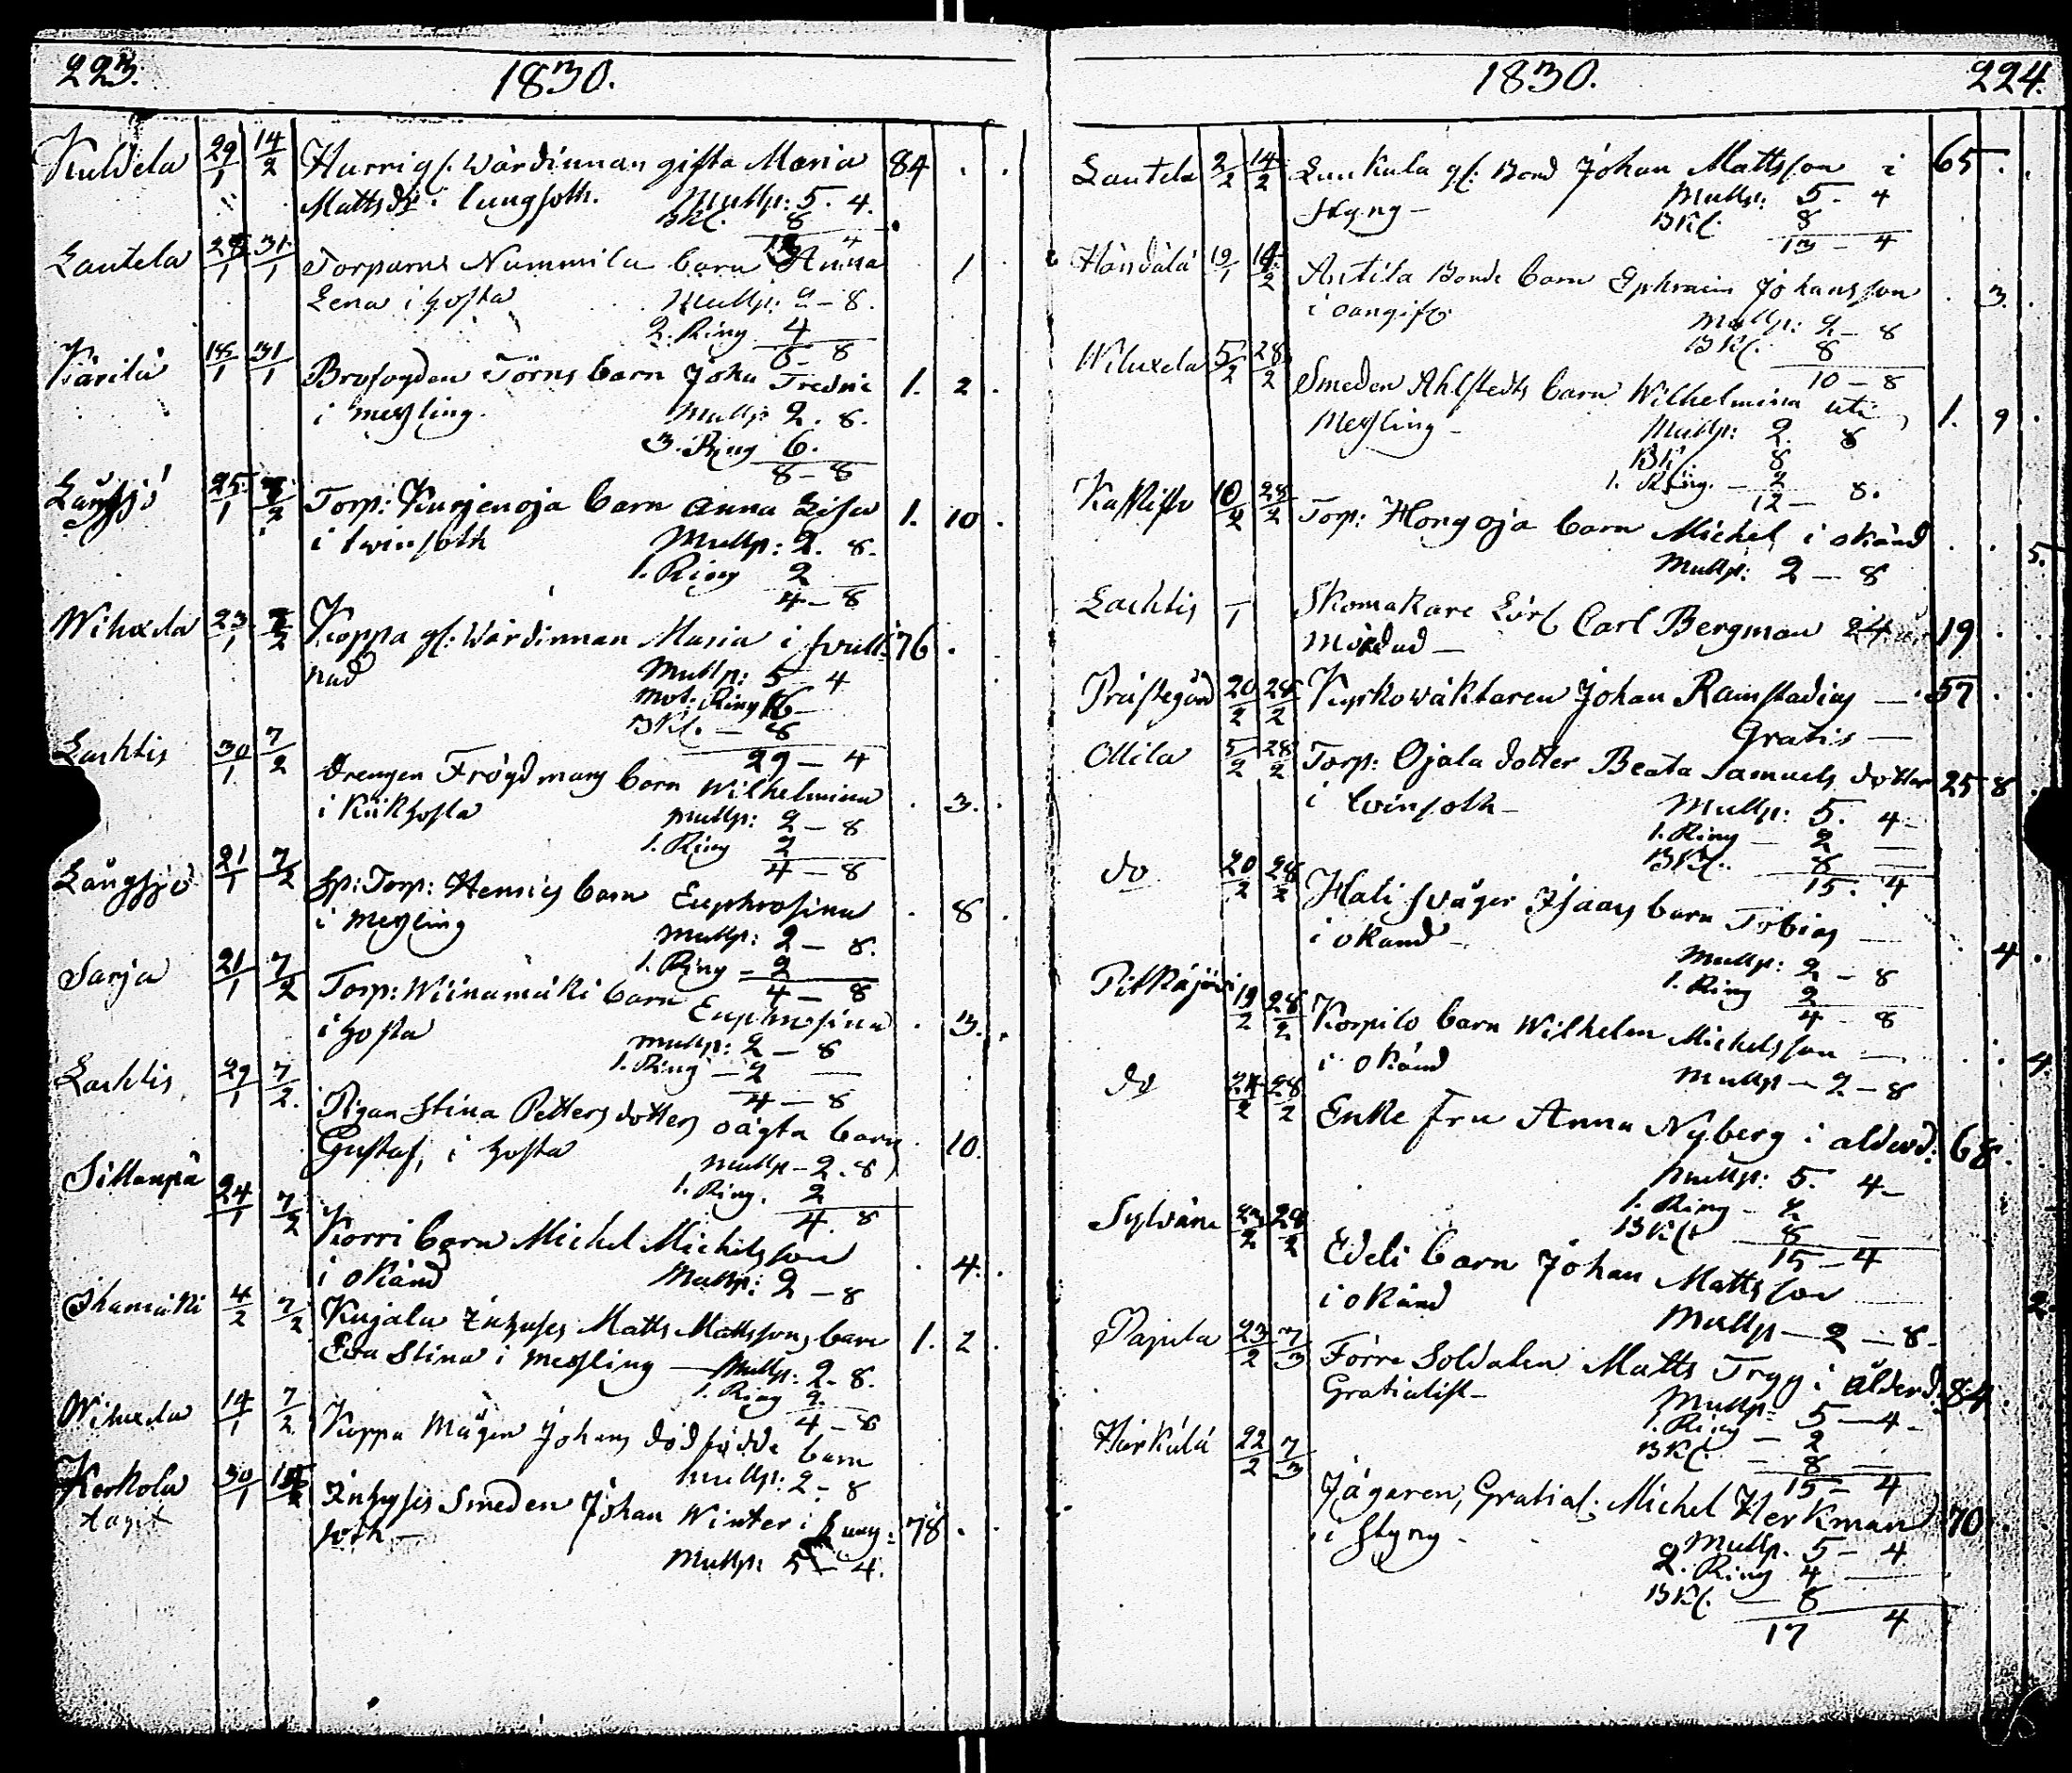 223. 1830.
Kuldela 29/1 14/2 Hurri gl. Wärdinnan gifta Maria 84 . .
Mattsdr i lungsoth. Mullp: 5. 4.
BKl. 8
13 4
Lautela 28/1 31/1 Torparns Nummila barn Anna . 1
Lena i hosta Mullp: 2 - 8.
2. Ring 4
6 - 8
Kärilä 18/1 31/1 Brofogden Törns barn Joha Fredric 1. 2 .
i messling. Mullp 2. 8.
3. Ring 6.
8 - 8
Långsjö 25/1 7/2 Torp: Kurjenoja barn Anna Lisa 1. 10 .
i twinsoth Mullp: 2. 8.
1. Ring 2
4 - 8
Wiluxela 23/1 7/2 Koppa gl. Wärdinnan Maria i svull- 76 .
nad Mullp: 5 - 4
Mot. Ring 16 -
BKl. - 8
29 - 4
Lachtis 30/1 7/2 Drengen Frögdmans barn Wilhelmina . 3. .
i kikhosta Mullp: 2 - 8
1. Ring 2
4 - 8
Långsjö 21/1 7/2 Sp: Torp: Henrics barn Euphrosina . 8 .
i messling Mullp: 2 - 8.
1. Ring - 2
4 - 8
Sarja 21/1 7/2 Torp: Wiinamäki barn Euphrosina . 3. .
i hosta Mullp: 2 - 8
1. Ring - 2
4 - 8
Lachtis 29/1 7/2 Pigan Stina Petters dotters oägta barn . 10.
Gustaf, i hosta Mullp - 2. 8
1. Ring. 2
4. 8
Sillanpä 24/1 7/2 Korri barn Michel Michelsson . 4. .
i okänd Mullp: 2 - 8
Ihamäki 4/2 7/2 Kujala Inhyses Matts Mattssons barn 1. 2 .
Eva Stina i messling - Mullp: 2. 8.
1. Ring 2.
4 - 8
Wiluxela 14/1 7/2 Koppa Mågen Johans dödfödde barn
Mullp: 2 - 8
Korkola 30/1 14/2 Inhyses Smeden Johan Winter i lung- 78 . .
soth - Mullp: 5 - 4.
1830. 224.
Lautela 2/2 14/2 Luukala gl: Bond Johan Mattsson i 65 . .
styng - Mullp: 5. 4
BKl. 8
13 - 4
Händälä 19/1 14/2 Antila Bonde barn Ephraim Johansson . 3. .
i oangifv. Mullp: 2 - 8
BKl. 8
10 - 8
Wiluxela 5/2 28/2 Smeden Ahlstedts barn Wilhelmina uti 1. 9 .
Messling - Mullp: 2. 8
BKl. 8
1. Ring. - 2
12 - 8.
10/2 28/2 Torp: Hongoja barn Michel i okänd . . 5.
Mullp: 2 - 8
Lachtis -/1 Skomakare Lärl. Carl Bergman 19 . .
Mördad -
Prästegård 20/2 28/2 Kyrkowäktaren Johan Ramstadius - 57 . .
Gratis -
Ollila 5/2 28/2 Torp: Ojala dotter Beata Samuels dotter 25 8 .
i twinsoth - Mullp: 5. 4 -
1. Ring - 2 -
BKl. 8 -
15. 4
do 20/2 28/2 Hali Swåger Isaacs barn Tobias - . 4 .
i okänd - Mullp: 2 - 8
1. Ring 2
4 - 8
Pitkäjärvi 19/2 28/2 Korpilo barn Wilhelm Michelsson - . . 4.
i okänd Mullp - 2 - 8
do 24/2 28/2 Enke Fru Anna Nyberg i ålderd: 68. .
Mullp: 5. 4 -
1. Ring - 2
BKl. 8 -
15 - 4
Sylväne 23/2 28/2 Edeli barn Johan Mattsson 2.
i okänd Mullp - 2 - 8 -
Pajula 23/2 7/3 Förre Soldaten Matts Trygg i ålderd. 84 .
Gratialist - Mullp: 5 - 4 -
1. Ring - 2
BKl. - 8 -
15 - 4
Härkälä 22/2 7/3 Jägaren, Gratial: Michel Herkman 70 . .
i styng - Mullp. 5 - 4
2. Ring 4 -
BKl. - 8
17 4